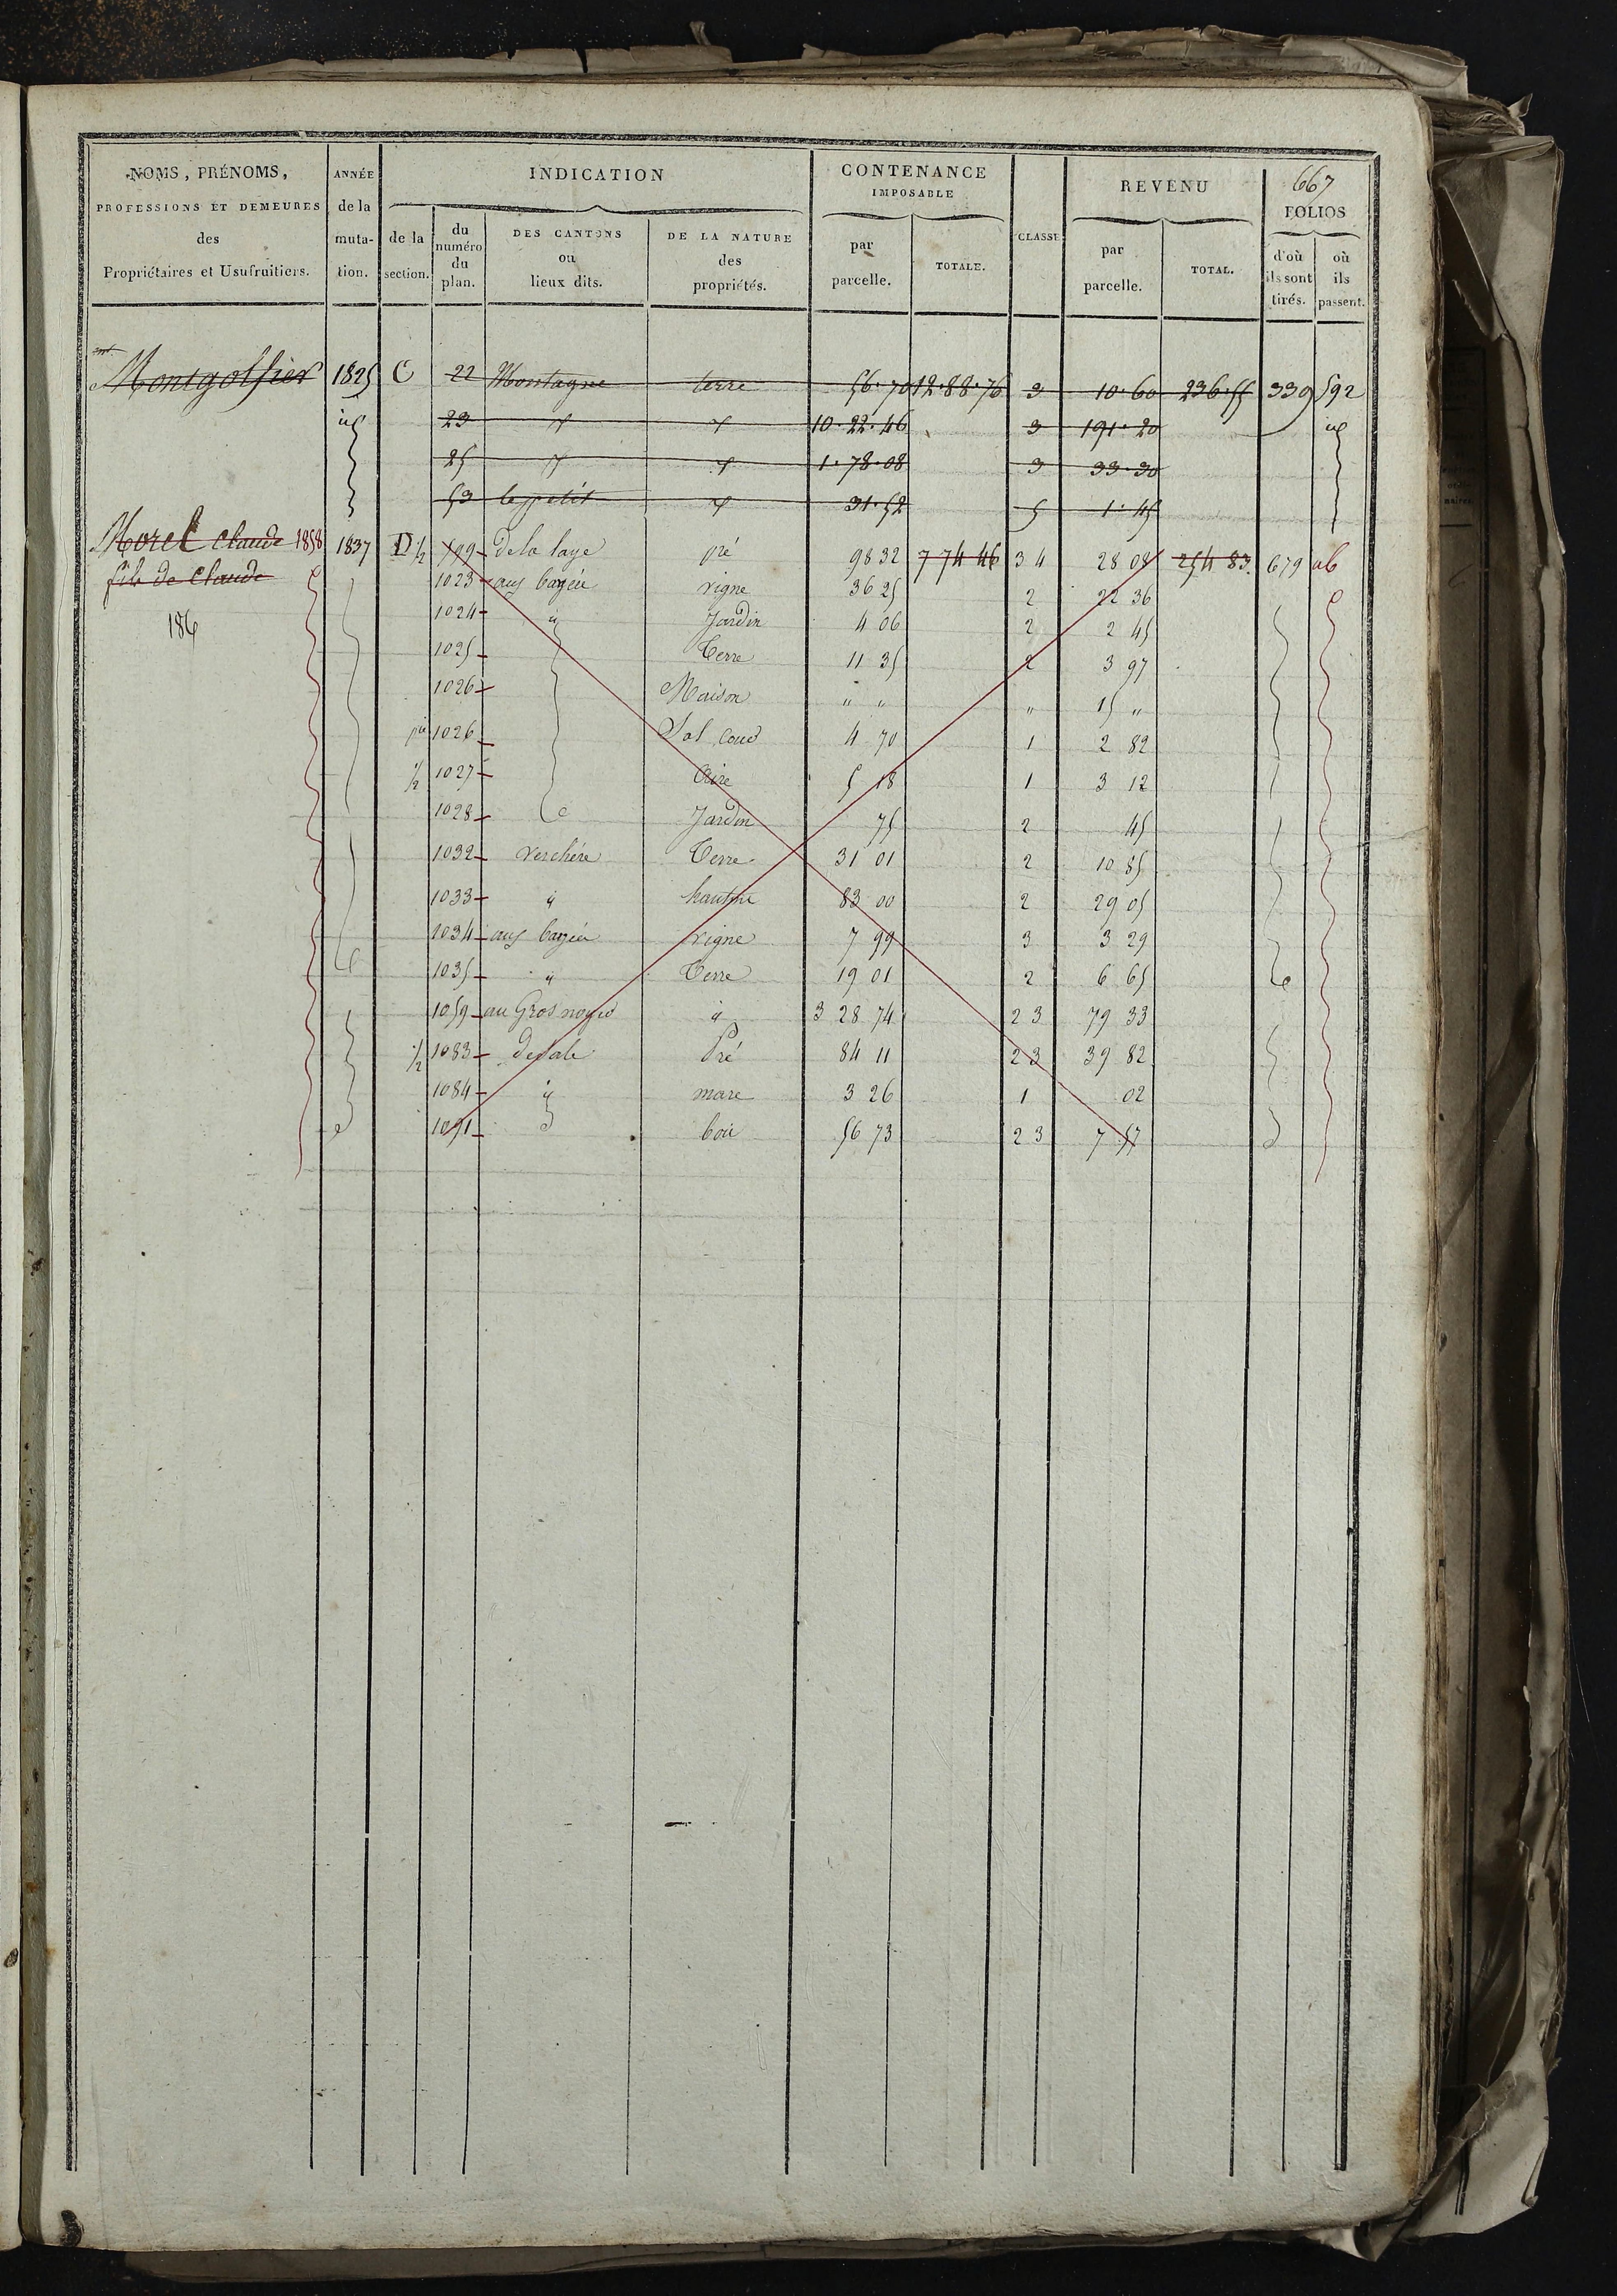 667
NOMS, PRÉNOMS, PROFESSIONS ET DEMEURES des Propriétaires et Usufruitiers.
ANNÉE de la muta- tion.
INDICATION
de la section.
du numéro du plan.
DES CANTONS ou lieux dits.
DE LA NATURE des propriétés.
CONTENANCE IMPOSABLE
par parcelle.
TOTALE.
CLASSE
REVENU
par parcelle.
TOTAL.
FOLIOS
d'où ils sont tirés.
où ils passent.
Montgolfier 1825 C 22 Montagne terre 56.70 12.88.76 3 10.60 236.55 339 592
id 23 10.22.46 3 191.20 id
25 1.78.08 3 33.30
53 le petit 31.52 5 1.45
Morel Claude 1858 1837 D 1/2 599 de la laye pré 98 32 7 74 46 3 4 28 08 254 83 679 ab
fils de Claude 1023 vigne 36 25 2 22 36
186 1024 id Jardin 4 06 2 2 45
1025 Terre 11 35 2 3 97
1026 Maison " " " 15 "
1026 Sol Cour 4 70 1 2 82
1/2 1027 Aire 5 18 1 3 12
1028 Jardin 75 2 45
1032 verchère Terre 31 01 2 10 85
1033 id 83 00 2 29 05
1034 vigne 7 99 3 3 29
1035 id Terre 19 01 2 6 65
1059 au Gros id 3 28 74 2 3 79 33
1/2 1083 Pré 84 11 2 3 39 82
1084 id mare 3 26 1 02
1091 bois 56 73 2 3 7 57